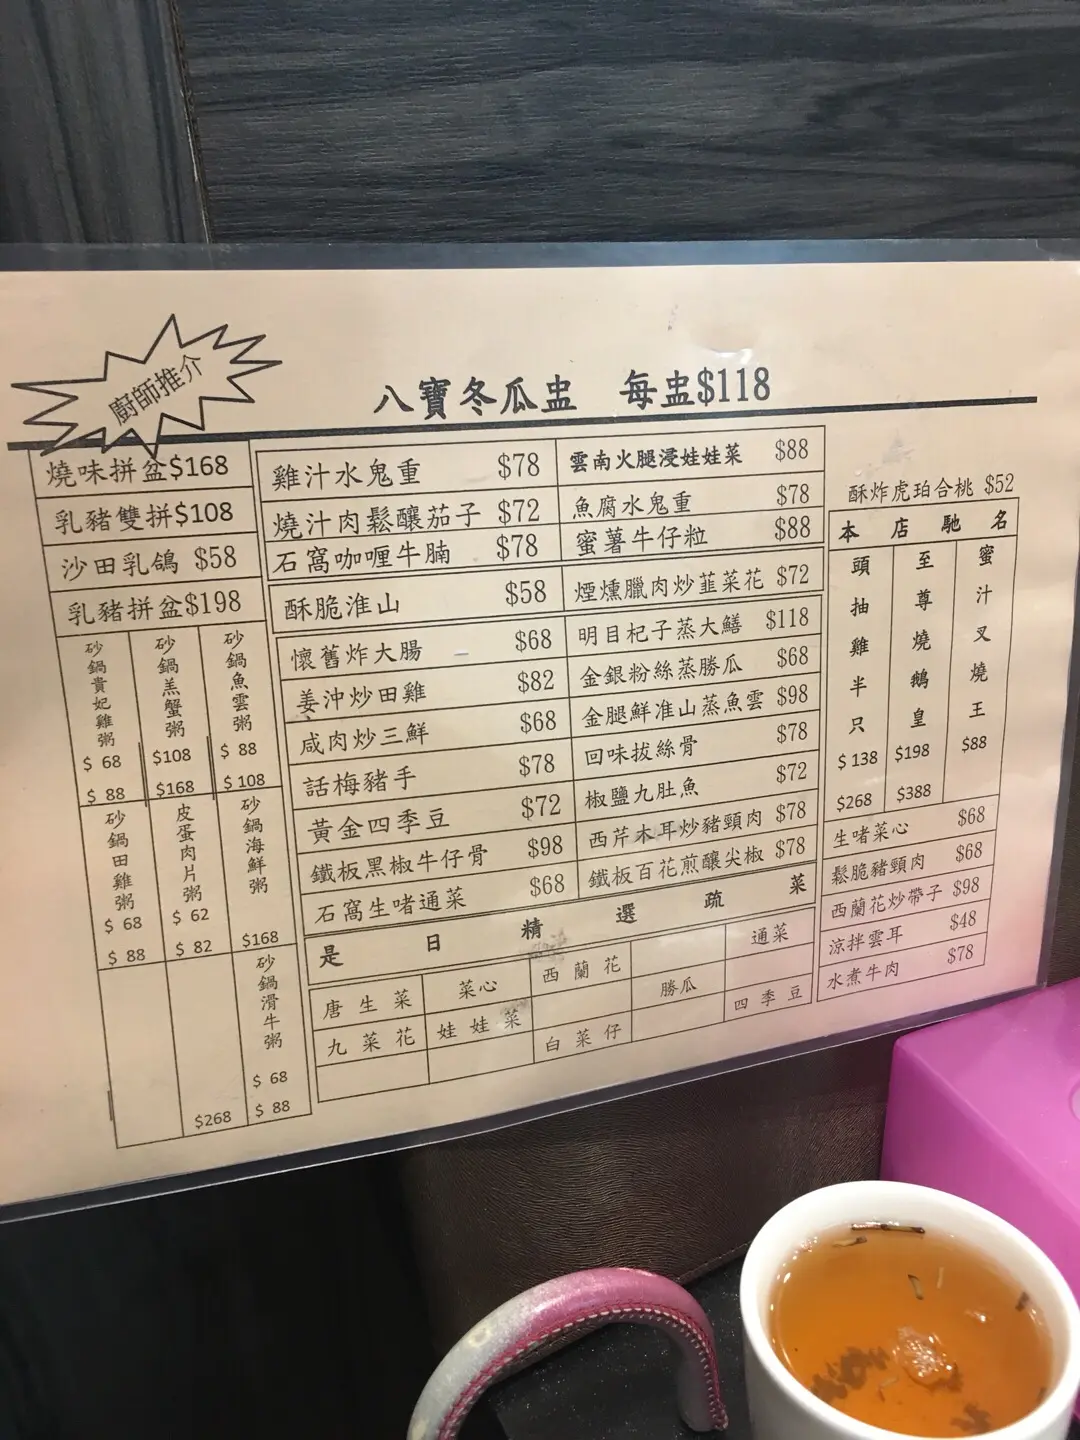 廚師推介
八寶冬瓜盅 每盅$118
燒味拼盆$168
乳豬雙拼$108
沙田乳鴿 $58
乳豬拼盆$198
砂鍋貴妃雞粥 $ 68 $ 88
砂鍋羔蟹粥 $108 $168
砂鍋魚雲粥 $ 88 $ 108
砂鍋田雞粥 $ 68 $ 88
皮蛋肉片粥 $ 62 $ 82
砂鍋海鮮粥 $168
$268
砂鍋滑牛粥 $ 68 $ 88
雞汁水鬼重 $78
燒汁肉鬆釀茄子 $72
石窩咖喱牛腩 $78
酥脆淮山 $58
懷舊炸大腸 $68
姜沖炒田雞 $82
咸肉炒三鮮 $68
話梅豬手 $78
黃金四季豆 $72
鐵板黑椒牛仔骨 $98
石窩生啫通菜 $68
雲南火腿浸娃娃菜 $88
魚腐水鬼重 $78
蜜薯牛仔粒 $88
煙燻臘肉炒韮菜花 $72
明目杞子蒸大鱔 $118
金銀粉絲蒸勝瓜 $68
金腿鮮准山蒸魚雲 $98
回味拔絲骨 $78
椒鹽九肚魚 $72
西芹木耳炒豬頸肉 $78
鐵板百花煎釀尖椒 $78
是日精選疏菜
唐生菜 菜心 西蘭花 勝瓜 通菜
九菜花 娃娃菜 白菜仔 四季豆
酥炸虎珀合桃 $52
本店馳名
頭抽雞半只 $138 $268
至尊燒鵝皇 $198 $388
蜜汁叉燒王 $88
生啫菜心 $68
鬆脆豬頸肉 $68
西蘭花炒帶子 $98
涼拌雲耳 $48
水煮牛肉 $78